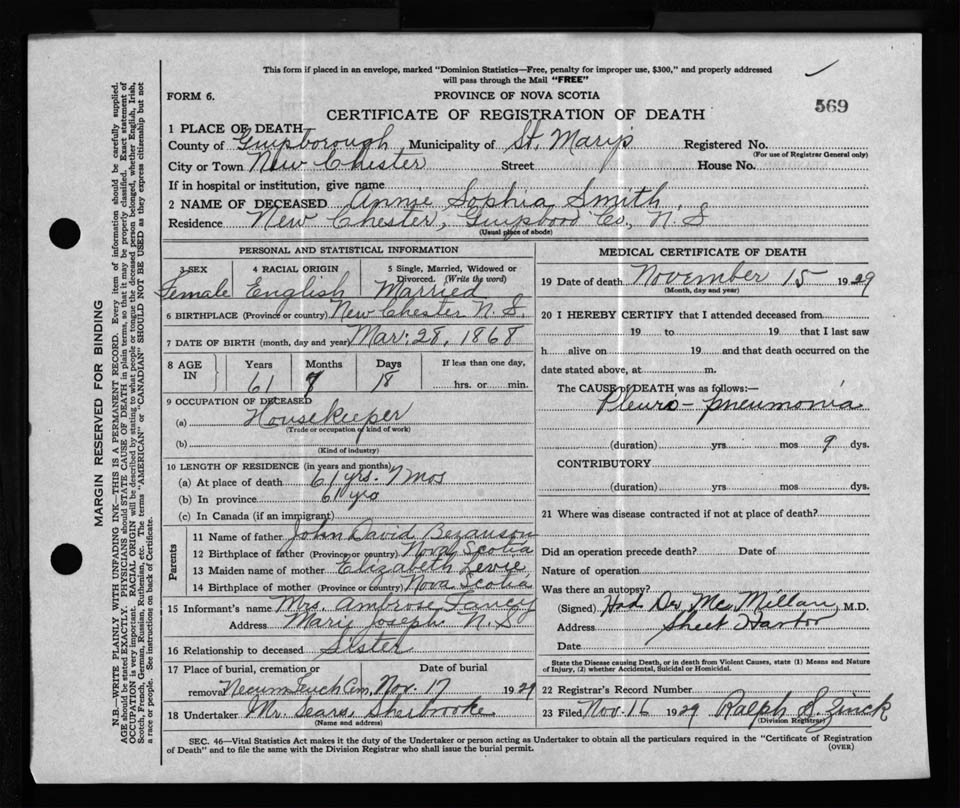 This form if placed in an envelope, marked "Dominion Statistics—Free, penalty for improper use, $300," and properly addressed
will pass through the Mail "FREE"
FORM 6.
PROVINCE OF NOVA SCOTIA
569
CERTIFICATE OF REGISTRATION OF DEATH
1 PLACE OF DEATH
County of Guysborough Municipality of St. Mary's Registered No.
(For use of Registrar General only)
City or Town New Chester Street House No.
If in hospital or institution, give name
2 NAME OF DECEASED Annie Sophia Smith
Residence New Chester, Guysboro Co, N. S
(Usual place of abode)
PERSONAL AND STATISTICAL INFORMATION
3 SEX 4 RACIAL ORIGIN 5 Single, Married, Widowed or
Divorced. (Write the word)
Female English Married
6 BIRTHPLACE (Province or country) New Chester N. S.
7 DATE OF BIRTH (month, day and year) Mar: 28, 1868
8 AGE IN Years Months Days If less than one day,
61 7 18 hrs. or min.
9 OCCUPATION OF DECEASED
(a) Housekeeper
(Trade or occupation or kind of work)
(b)
(Kind of industry)
10 LENGTH OF RESIDENCE (in years and months)
(a) At place of death 61 yrs. 7 mos
(b) In province 61 yrs
(c) In Canada (if an immigrant)
Parents
11 Name of father John David Bezanson
12 Birthplace of father (Province or country) Nova Scotia
13 Maiden name of mother Elizabeth Levie
14 Birthplace of mother (Province or country) Nova Scotia
15 Informant's name Mrs. Ambrose Fancy
Address Marie Joseph N. S
16 Relationship to deceased Sister
17 Place of burial, cremation or Date of burial
removal Necum Teuch Cem. Nov. 17 1929
18 Undertaker Mr. Sears Sherbrooke
(Name and address)
MEDICAL CERTIFICATE OF DEATH
19 Date of death November 15 1929
(Month, day and year)
20 I HEREBY CERTIFY that I attended deceased from
19 to 19 that I last saw
h alive on 19 and that death occurred on the
date stated above, at m.
The CAUSE of DEATH was as follows:—
Pleuro-pneumonia
(duration) yrs mos 9 dys.
CONTRIBUTORY
(duration) yrs mos dys.
21 Where was disease contracted if not at place of death?
Did an operation precede death? Date of
Nature of operation
Was there an autopsy?
(Signed) Had Dr. McMillan, M.D.
Address Sheet Harbor
Date
State the Disease causing Death, or in death from Violent Causes, state (1) Means and Nature
of Injury, (2) whether Accidental, Suicidal or Homicidal.
22 Registrar's Record Number
23 Filed Nov. 16 1929 Ralph B. Zinck
(Division Registrar)
SEC. 46—Vital Statistics Act makes it the duty of the Undertaker or person acting as Undertaker to obtain all the particulars required in the "Certificate of Registration
of Death" and to file the same with the Division Registrar who shall issue the burial permit.
(OVER)
MARGIN RESERVED FOR BINDING
N.B.—WRITE PLAINLY WITH UNFADING INK—THIS IS A PERMANENT RECORD. Every item of information should be carefully supplied.
AGE should be stated EXACTLY. PHYSICIANS should STATE CAUSE OF DEATH in plain terms, so that it may be properly classified. Exact statement of
OCCUPATION is very important. RACIAL ORIGIN will be described by stating to what people or tongue the deceased person belonged, whether English, Irish,
Scotch, French, German, Russian, Ruthenian, etc. The terms "AMERICAN" or "CANADIAN" SHOULD NOT BE USED as they express citizenship but not
a race or people. See instructions on back of Certificate.